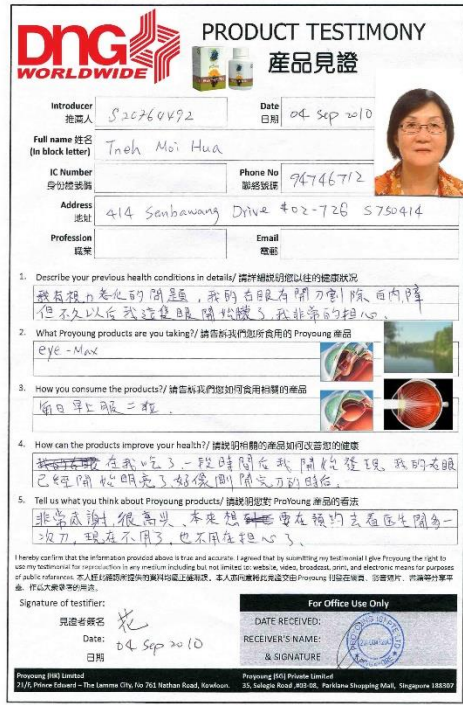 DNG
WORLDWIDE
PRODUCT TESTIMONY
產品見證
Introducer
推薦人
S20764492
Date
日期
04 Sep 2010
Full name 姓名
(In block letter)
Tneh Moi Hua
IC Number
身份證號碼
Phone No
聯絡號碼
94746712
Address
地址
414 Senbawang Drive #02-726 S750414
Profession
職業
Email
電郵
1. Describe your previous health conditions in details/ 請詳細說明您以往的健康狀況
我有視力老化的問題，我的右眼有開刀割除白內障
但不久以后我這隻眼開始矇了，我非常的担心．
2. What Proyoung products are you taking?/ 請告訴我們您所食用的 Proyoung 產品
eye-Max
3. How you consume the products?/ 請告訴我們您如何食用相關的產品
每日早上服二粒．
4. How can the products improve your health?/ 請說明相關的產品如何改善您的健康
在我吃了一段時間后我開始發現，我的右眼
已經開始明亮了，好像剛開完刀的時后．
5. Tell us what you think about Proyoung products/ 請說明您對 ProYoung 產品的看法
非常感謝，很高興，本來想要在預約去看医生開多一
次刀，現在不用了，也不用在担心了．
I hereby confirm that the information provided above is true and accurate. I agreed that by submitting my testimonial I give Proyoung the right to
use my testimonial for reproduction in any medium including but not limited to: website, video, broadcast, print, and electronic means for purposes
of public references. 本人經此確認所提供的資料均屬正確無誤，本人亦同意將此見證交由 Proyoung 刊登在網頁、
Signature of testifier:
見證者簽名
花
Date:
日期
04 Sep 2010
For Office Use Only
DATE RECEIVED:
RECEIVER'S NAME:
& SIGNATURE
Proyoung (HK) Limited
21/F, Prince Edward – The Lamme City, No 761 Nathan Road, Kowloon.
Proyoung (SG) Private Limited
35, Selegie Road ,#03-08, Parklane Shopping Mall, Singapore 188307